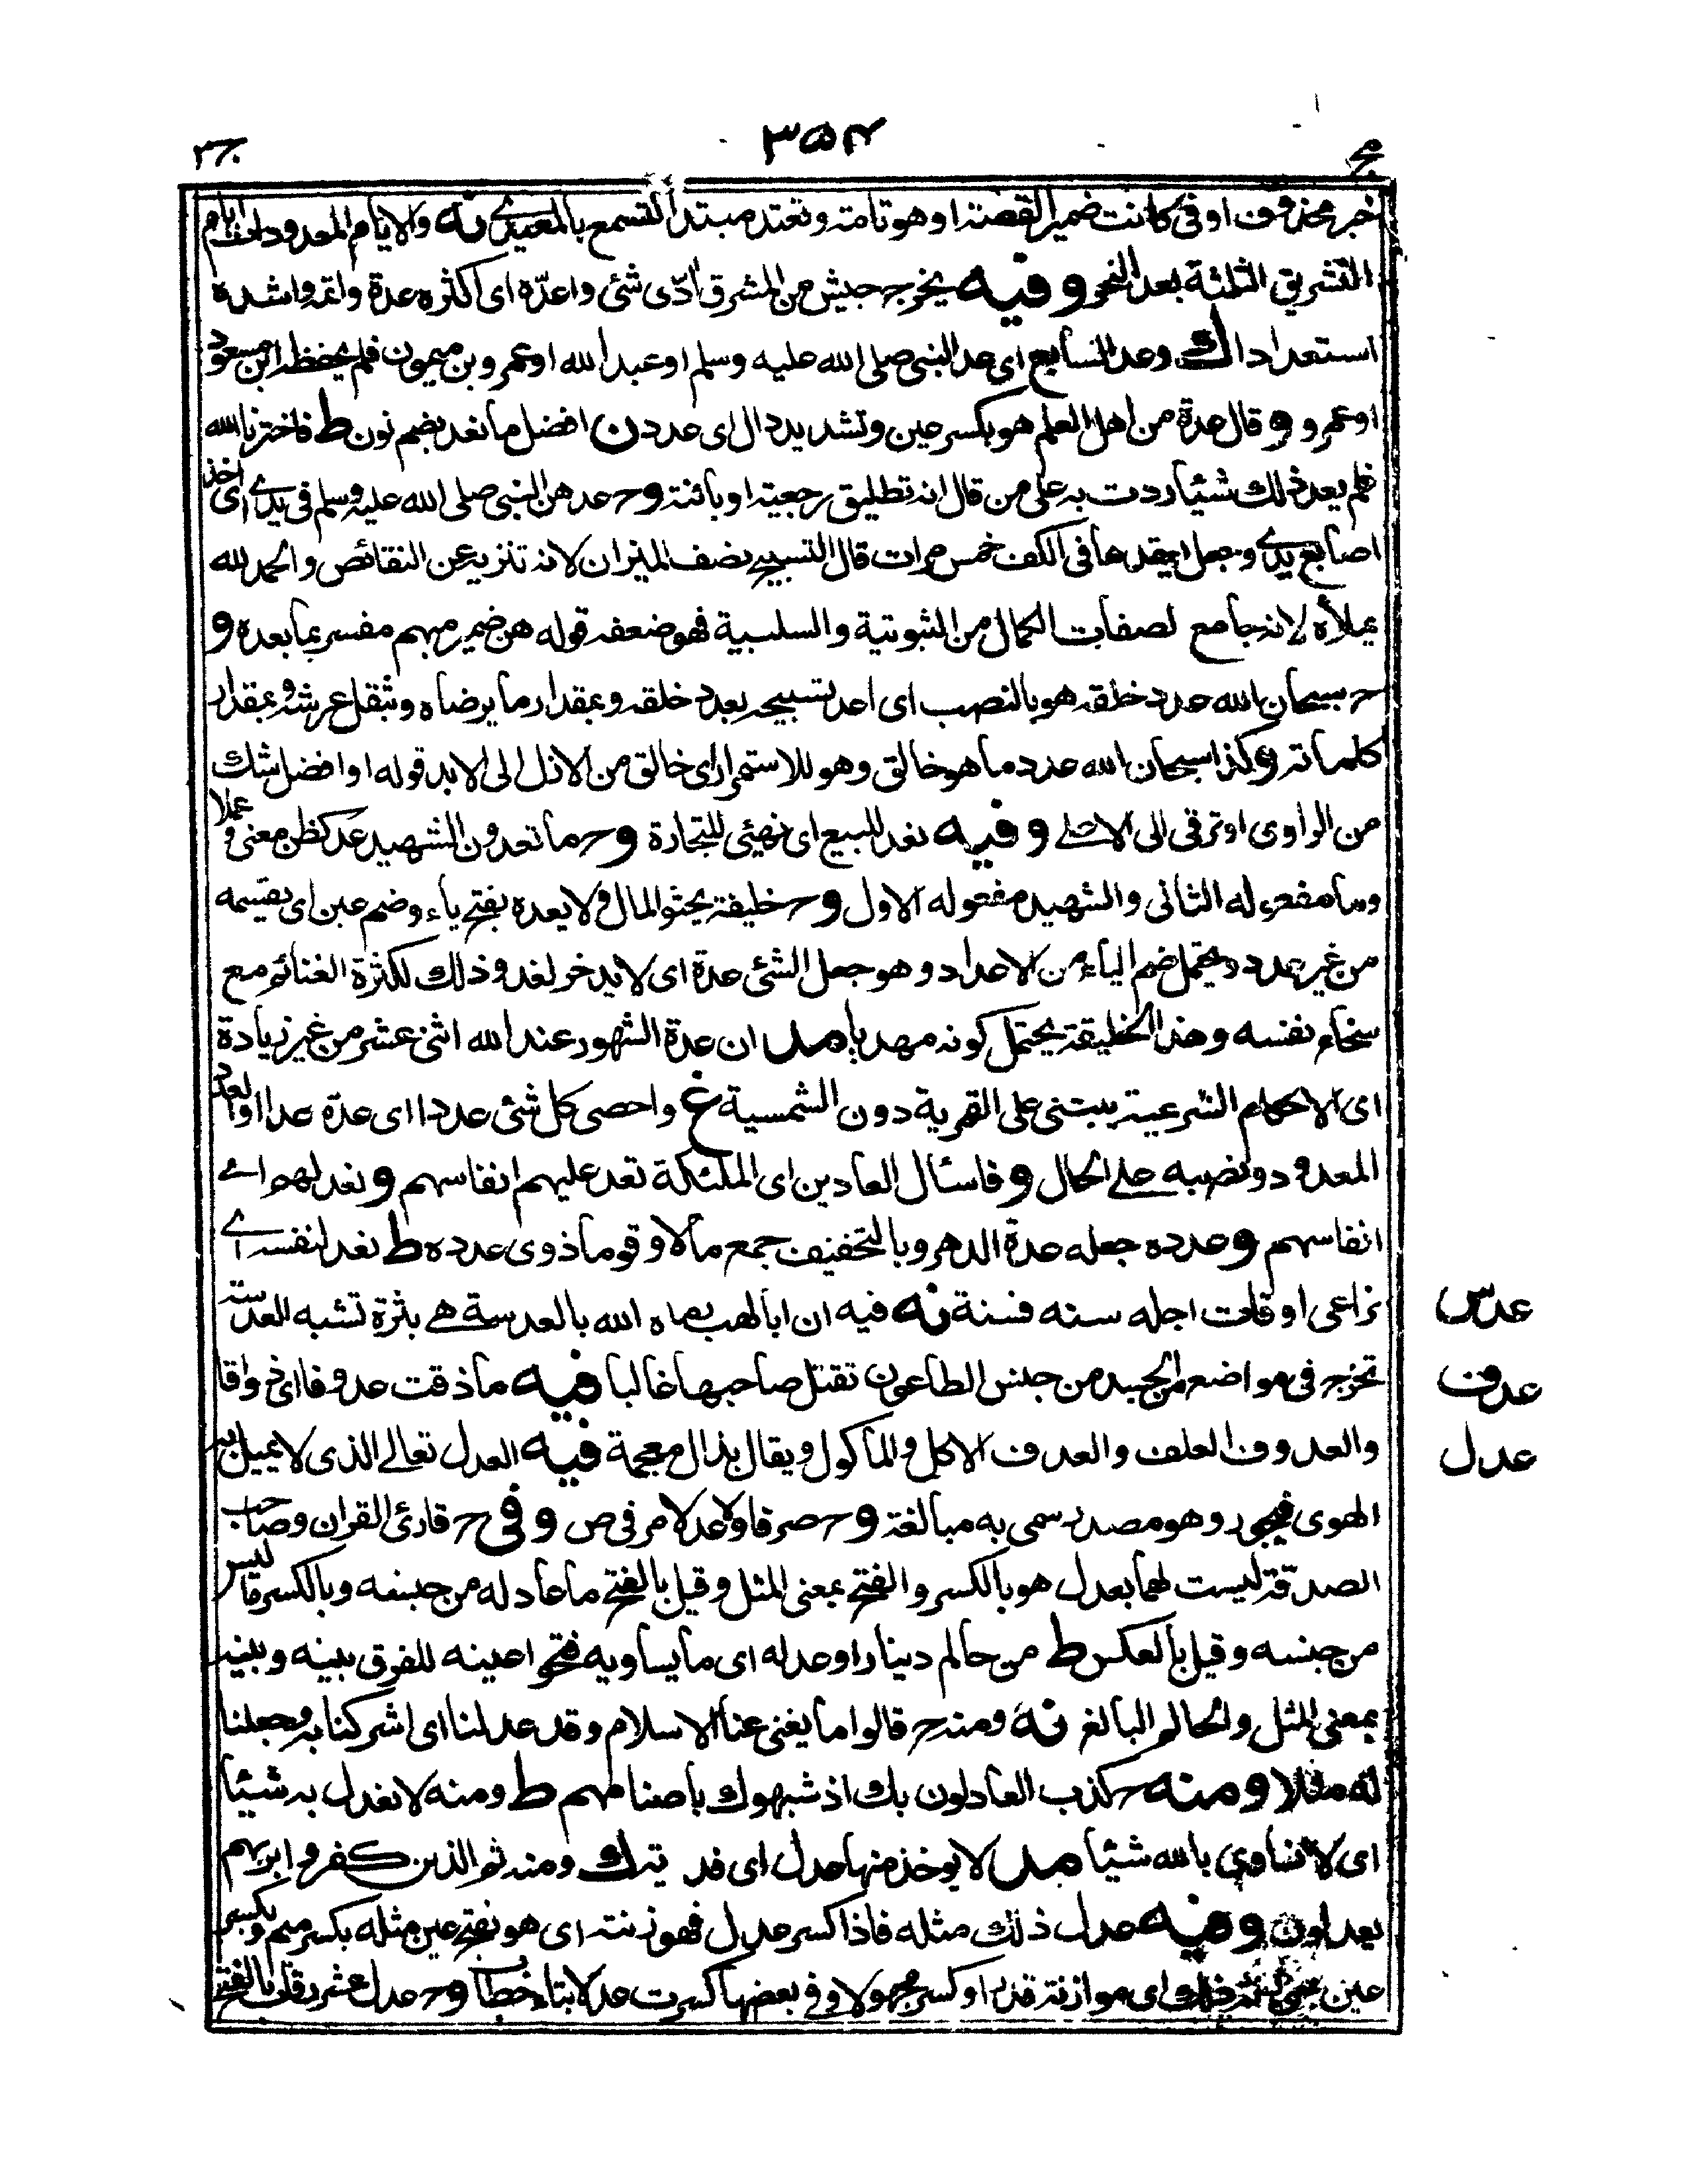 ۳۵۴
خبر محذوف او فى كانت ضمير القصة او هو تامة وتعتد مبتدأ لتسمع بالمعيدى نه والايام المعدودات ايام
التشريق الثلثة بعد النحر وفيه يخرج جيش من المشرق ادى شئى واعده اى اكثره عدة واتمه واشده
استعدادا ك وعد السابع اى عد النبى صلى الله عليه وسلم او عبد الله او عمرو بن ميمون فلم يحفظه ابن مسعود
او عمرو و قال عدة من اهل العلم هو بكسر عين وتشديد دال اى عدد ن افضل ما نعد بضم نون ط فاخترنا الله
فلم يعد ذلك شيئا ردت به على من قال انه تطليق رجعية او بائنة وح عدهن النبى صلى الله عليه وسلم فى يدى اى اخذ
اصابع يدى وجعل يعقدها فى الكف خمس مرات قال التسبيح نصف الميزان لانه تنزيه عن النقائص والحمد لله
يملأه لانه جامع لصفات الكمال من الثبوتية والسلبية فهو ضعفه قوله هن ضمير مبهم مفسر بما بعده و
ح سبحان الله عدد خلقه هو بالنصب اى اعد تسبيحه بعدد خلقه وبمقدار ما يرضاه وثقل عرشه وبمقدار
كلماته وكذا سبحان الله عدد ما هو خالق وهو للاستمرار اى خالق من الازل الى الابد قوله او افضل شك
من الراوى او ترقى الى الاعلى وفيه نعد للبيع اى نهيئى للتجارة وح ما تعدون الشهيد عد كظن معنى وعملا
وما مفعوله الثانى والشهيد مفعوله الاول وح خليفة يحثو المال ولا يعده بفتح ياء وضم عين اى يقسمه
من غير عدد ويحتمل ضم الياء من الاعداد وهو جعل الشئى عدة اى لا يدخر لغد وذلك لكثرة الغنائم مع
سخاء نفسه وهذا الخليفة يحتمل كونه مهديا مد ان عدة الشهور عند الله اثنى عشر من غير زيادة
اى الاحكام الشرعية يبتنى على القمرية دون الشمسية غ واحصى كل شئى عددا اى عده عدا او العدد
المعدود ونصبه على الحال و فاسئال العادين اى الملئكة تعد عليهم انفاسهم و نعد لهم اى
انفاسهم وعدده جعله عدة الدهر وبالتخفيف جمع مالا وقوما ذوى عدده ط نعد لنفسه اى
نراعى اوقات اجله سنة فسنة نه فيه ان ابا لهب رماه الله بالعدسة هى بثرة تشبه العدسة
تخرج فى مواضع من الجسد من جنس الطاعون تقتل صاحبها غالبا فيه ما ذقت عدوفا اى ذواقا
والعدوف العلف والعدف الاكل والمأكول ويقال بذال معجمة فيه العدل تعالى الذى لا يميل به
الهوى فيجور وهو مصدر سمى به مبالغة وح صرفا ولا عدلا مر فى ص وفى ح قارئ القران وصاحب
الصدقة ليست لهما بعدل هو بالكسر والفتح بمعنى المثل وقيل بالفتح ما عادله من جنسه وبالكسر ما ليس
من جنسه وقيل بالعكس ط من حالم دينارا وعدله اى ما يساويه فتحوا عينه للفرق بينه وبينه
بمعنى المثل والحالم البالغ نه ومنه ح قالوا ما يغنى عنا الاسلام وقد عدلنا اى اشركنا به وجعلنا
له مثلا ومنه ح كذب العادلون بك اذ شبهوك باصنامهم ط ومنه لا نعدل به شيئا
اى لا نساوى بالله شيئا مد لا يؤخذ منها عدل اى فدية ك ومنه ثم الذين كفروا بربهم
يعدلون وفيه عدل ذلك مثله فاذا كسر عدل فهو زنته اى هو بفتح عين مثله بكسر ميم وبكسر
عين اى موازنة قدره او كسر مجهولا وفى بعضها كسرت عدلا بتاء خطا وح عدل عشر رقاب بالفتح
عدس
عدف
عدل